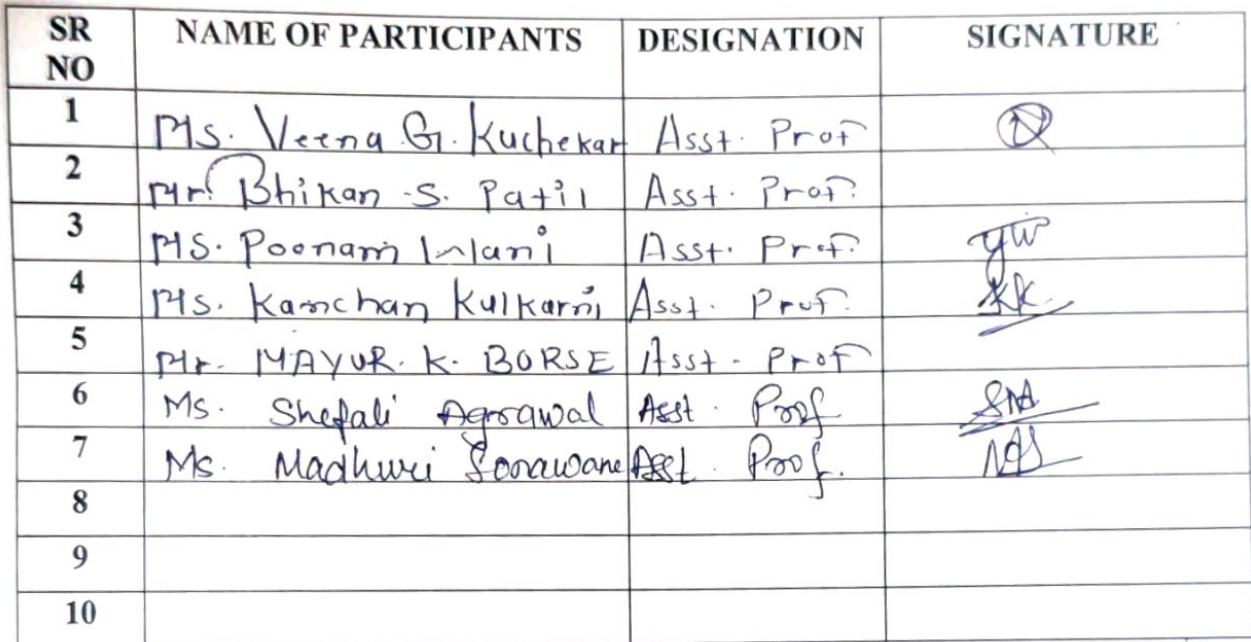 SR NO NAME OF PARTICIPANTS DESIGNATION SIGNATURE
1 Ms. Veena G. Kuchekar Asst. Prof
2 Mr. Bhikan S. Patil Asst. Prof.
3 Ms. Poonam Inlani Asst. Prof.
4 Ms. Kanchan Kulkarni Asst. Prof. KK
5 Mr. MAYUR. K. BORSE Asst. Prof
6 Ms. Shefali Agrawal Asst. Prof
7 Ms. Madhuri Sonawane Asst. Prof.
8
9
10